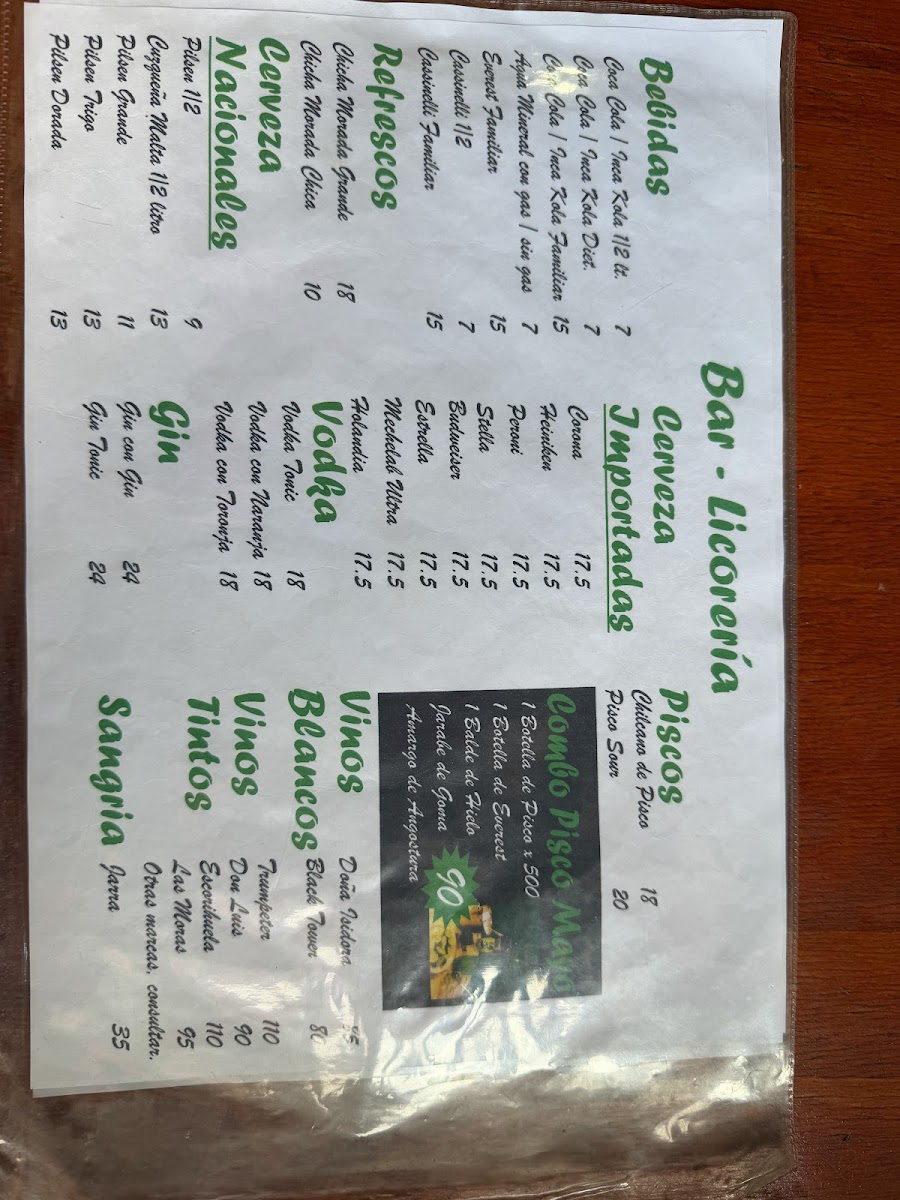 Bar - Licorería
Bebidas
Coca Cola / Inca Kola 1/2 lt. 7
Coca Cola / Inca Kola Diet. 7
Coca Cola / Inca Kola Familiar 15
Agua Mineral con gas / sin gas 7
Everest Familiar 15
Cassinelli 1/2 7
Cassinelli Familiar 15
Refrescos
Chicha Morada Grande 18
Chicha Morada Chica 10
Cerveza
Nacionales
Pilsen 1/2 9
Cuzqueña Malta 1/2 litro 13
Pilsen Grande 11
Pilsen Trigo 13
Pilsen Dorada 13
Cerveza
Importadas
Corona 17.5
Heiniken 17.5
Peroni 17.5
Stella 17.5
Budweiser 17.5
Estrella 17.5
Mechelab Ultra 17.5
Holandia 17.5
Vodka
Vodka Tonic 18
Vodka con Naranja 18
Vodka con Toronja 18
Gin
Gin con Gin 24
Gin Tonic 24
Piscos
Chilcano de Pisco 18
Pisco Sour 20
Combo Pisco
1 Botella de Pisco x 500
1 Botella de Everest
1 Balde de Hielo
Jarabe de Goma
Amargo de Angostura
90
Vinos
Blancos
Doña Isidora
Black Tower 80
Vinos
Tintos
Trumpeter 110
Don Luis 90
Escorihuela 110
Las Moras 95
Otras marcas, consultar.
Sangria
Jarra 35